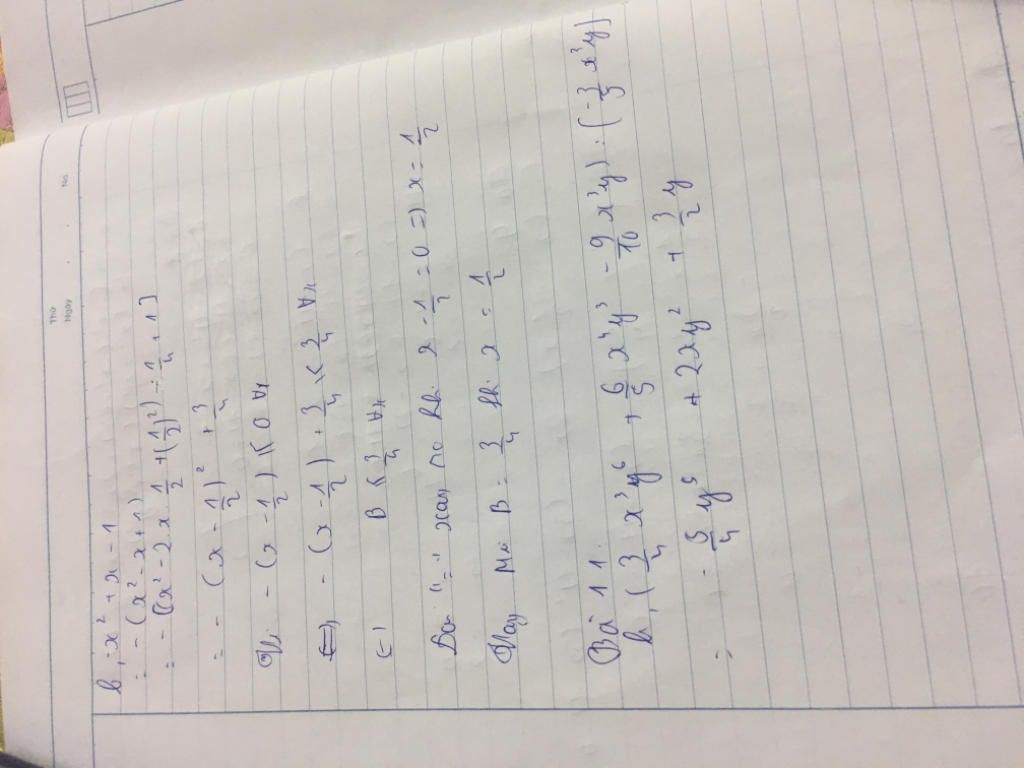 Thứ
Ngày . . No
b, -x² + x - 1
= - (x² - x + 1)
= - [(x² - 2 x 1/2 + (1/2)²) - 1/4 + 1]
= - (x - 1/2)² + 3/4
Vì - (x - 1/2) ≤ 0 ∀x
(=) - (x - 1/2) + 3/4 ≤ 3/4 ∀x
(-) B ≤ 3/4 ∀x
Dấu "=" xảy ra khi x - 1/2 = 0 =) x = 1/2
Vậy B = 3/4 khi x = 1/2
Bài 11.
b, (3/4 x³y⁶ + 6/5 x⁴y³ - 9/10 x³y) : (-3/5 x³y)
= - 5/4 y⁵ + 2xy² + 3/2 y